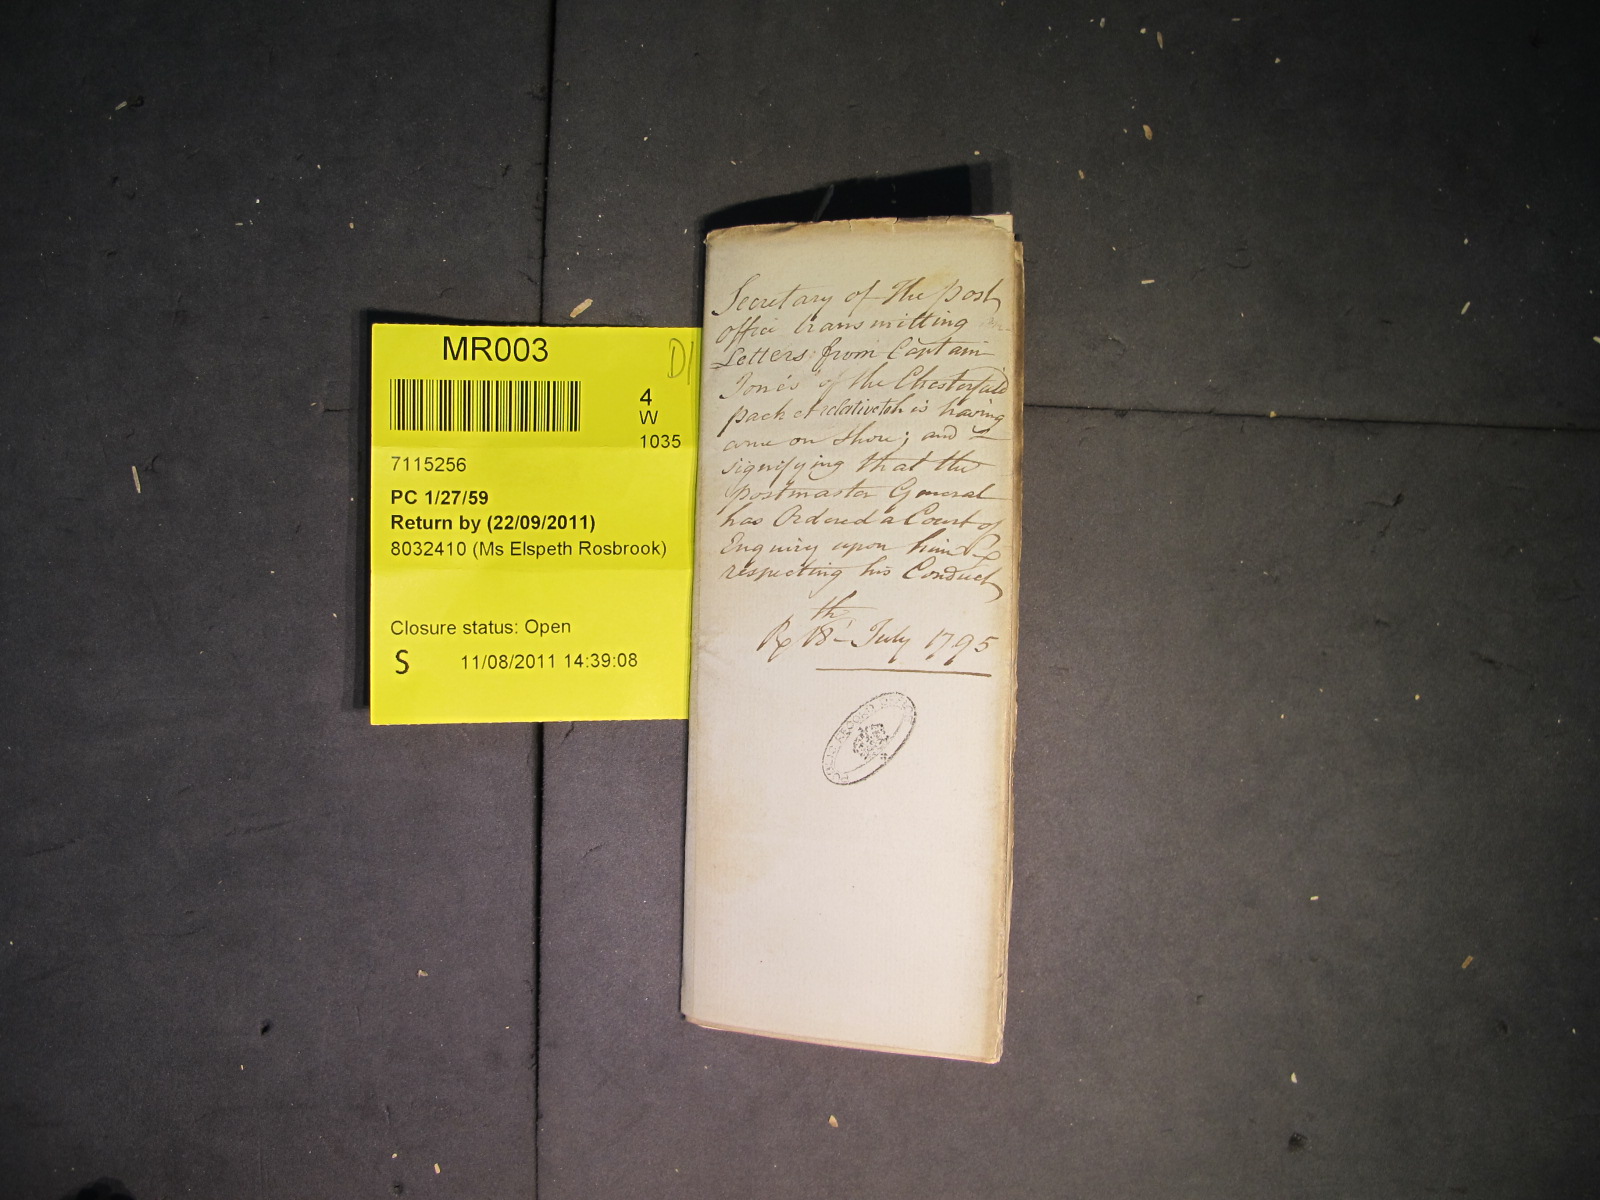 MR003
D1
4
W
1035
7115256
PC 1/27/59
Return by (22/09/2011)
8032410 (Ms Elspeth Rosbrook)
Closure status: Open
S 11/08/2011 14:39:08
Secretary of the post
office transmitting
Letters from Captain
Jones of the Chesterfield
packet relative to his having
come on shore; and
signifying that the
postmaster General
has Ordered a Court of
Enquiry upon him
respecting his Conduct
Rx 18th July 1795
PUBLIC RECORD OFFICE